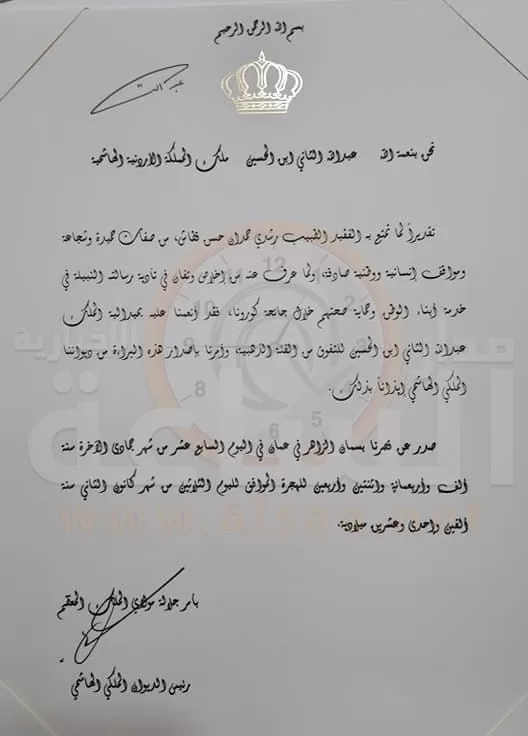 بسم الله الرحمن الرحيم
عبد الله
نحن بنعمة الله عبدالله الثاني ابن الحسين ملك المملكة الأردنية الهاشمية
تقديراً لما تمتع به الفقيد الطبيب رشدي حمدان حسن قفاش، من صفات حميدة وشجاعة
ومواقف إنسانية ووطنية صادقة، ولما عرف عنه من إخلاص وتفان في تأدية رسالته النبيلة في
خدمة أبناء الوطن وحماية صحتهم خلال جائحة كورونا، فقد أنعمنا عليه بميدالية الملك
عبدالله الثاني ابن الحسين للتفوق من الفئة الذهبية، وأمرنا بإصدار هذه البراءة من ديواننا
الملكي الهاشمي إيذاناً بذلك.
صدر عن قصرنا بسمان الزاهر في عمان في اليوم السابع عشر من شهر جمادى الآخرة سنة
ألف وأربعمائة واثنتين وأربعين للهجرة الموافق لليوم الثلاثين من شهر كانون الثاني سنة
ألفين وإحدى وعشرين ميلادية.
بأمر جلالة مولاي الملك المعظم
رئيس الديوان الملكي الهاشمي
الساعة
الإخبارية